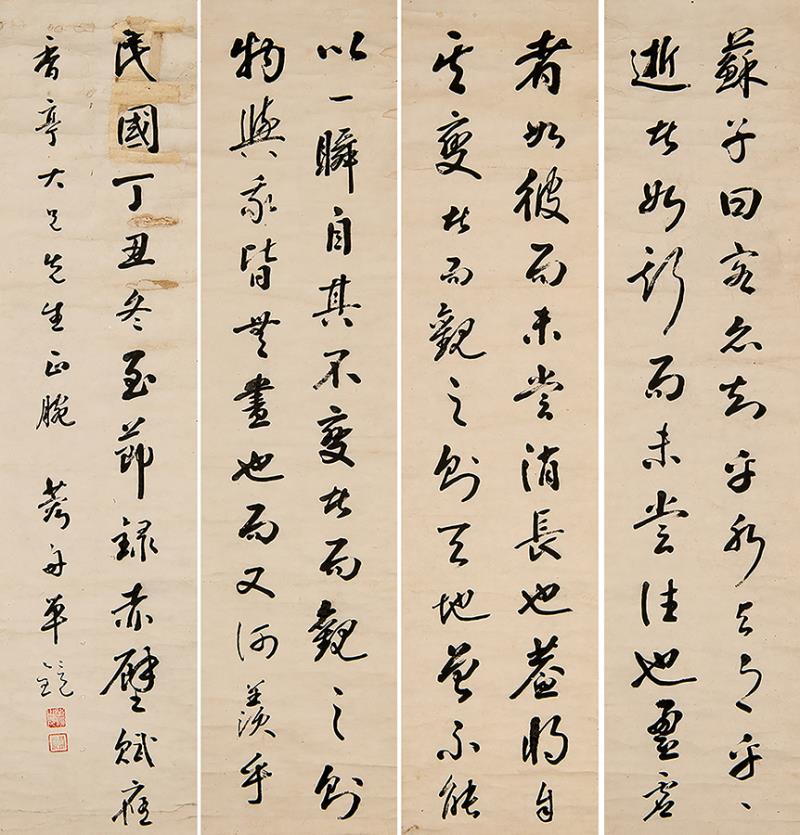 蘇子曰客亦知乎水与月乎
逝者如斯而未嘗往也盈虛
者如彼而未嘗消長也蓋將自
其變者而觀之則天地曾不能
以一瞬自其不變者而觀之則
物與我皆無盡也而又何羨乎
民國丁丑冬至節録赤壁賦應
香亭大兄先生正腕 舟單